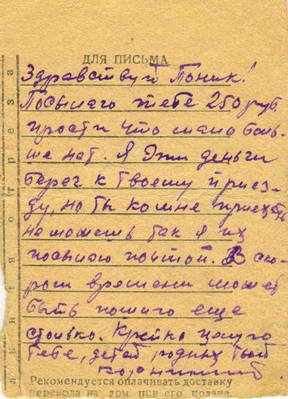 ДЛЯ ПИСЬМА
Здравствуй Тоник!
Посылаю тебе 250 руб.
прости что мало боль-
ше нет. Я эти деньги
берег к твоему приез-
ду, но ты ко мне приехать
не можешь так я их
посылаю почтой. В ско-
ром времени может
быть пошлю еще
столько. Крепко целую
тебя, детей, родных твой
Рекомендуется оплачивать доставку
перевода на дом при его подаче.